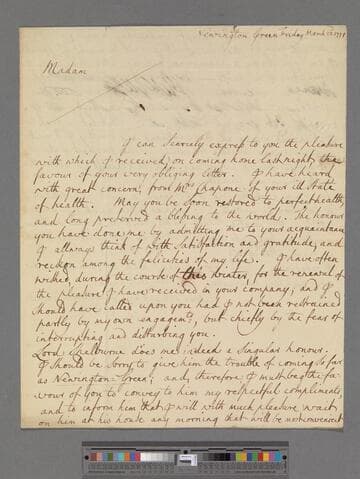 Newington Green Friday March
Madam
I can scarcely express to you the pleasure
with which I received, on coming home last night, the
favour of your very obliging letter. I have heard
with great concern, from Mrs Chapone, of your ill state
of health. May you be soon restored to perfect health,
and long preserved a blessing to the world. The honour
you have done me by admitting me to your acquaintance
I allways think of with satisfaction and gratitude, and
reckon among the felicities of my life. I have often
wished, during the course of this winter, for the renewal of
the pleasure I have received in your company; and I
should have called upon you had I not been restrained
partly by my own engagemts, but chiefly by the fear of
interrupting and disturbing you.
Lord Shelburne does me indeed a singular honour.
I should be sorry to give him the trouble of coming so far
as Newington-Green; and, therefore I must beg the fa-
vour of you to convey to him my respectful compliments,
and to inform him that I will with much pleasure wait
on him at his house any morning that will be not inconvenient